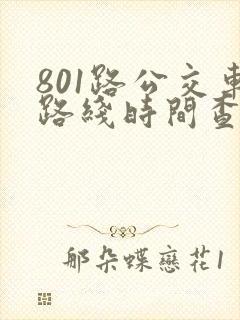 801路公交車
路綫時間查
那朵蝶戀花1